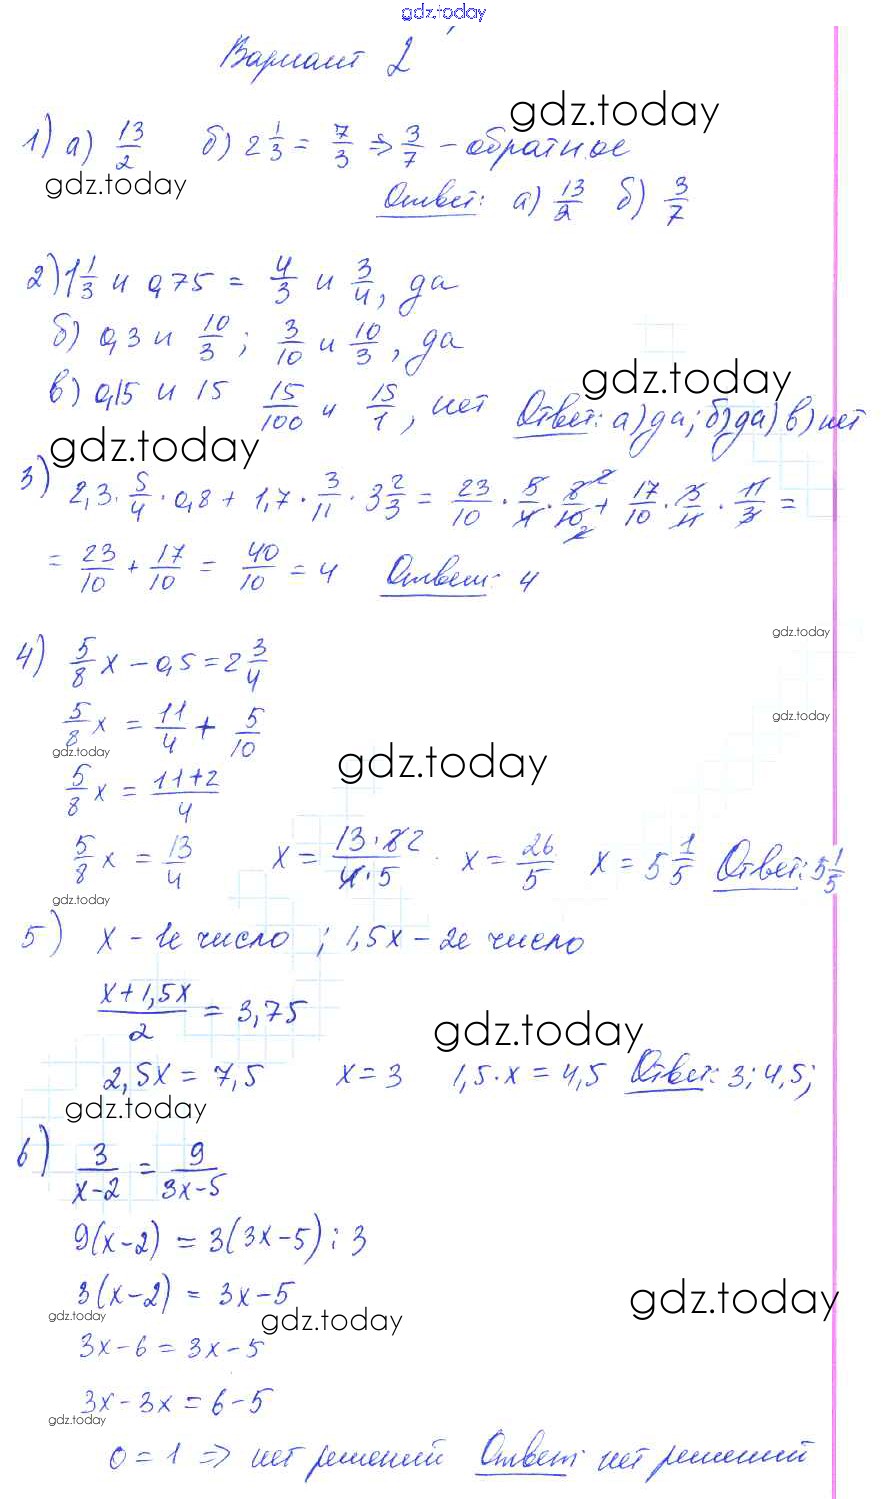 gdz.today
Вариант 2
gdz.today
1) а) 13/2 б) 2 1/3 = 7/3 => 3/7 - обратное
gdz.today
Ответ: а) 13/2 б) 3/7
2) 1 1/3 и 0,75 = 4/3 и 3/4, да
б) 0,3 и 10/3; 3/10 и 10/3, да
gdz.today
в) 0,15 и 15 15/100 и 15/1, нет Ответ: а) да; б) да) в) нет
gdz.today
3) 2,3 · 5/4 · 0,8 + 1,7 · 3/11 · 3 2/3 = 23/10 · 5/4 · 8/10 2/2 + 17/10 · 3/11 · 11/3 =
= 23/10 + 17/10 = 40/10 = 4 Ответ: 4
gdz.today
4) 5/8 x - 0,5 = 2 3/4
gdz.today
5/8 x = 11/4 + 5/10
gdz.today
gdz.today
5/8 x = (11+2)/4
5/8 x = 13/4 x = (13·8 2)/(4·5) · x = 26/5 x = 5 1/5 Ответ: 5 1/5
gdz.today
5) x - 1е число ; 1,5x - 2е число
(x + 1,5x)/2 = 3,75
gdz.today
2,5x = 7,5 x = 3 1,5·x = 4,5 Ответ: 3; 4,5;
gdz.today
6) 3/(x-2) = 9/(3x-5)
9(x-2) = 3(3x-5) : 3
3(x-2) = 3x-5
gdz.today
gdz.today gdz.today
3x-6 = 3x-5
3x-3x = 6-5
gdz.today
0 = 1 => нет решений Ответ: нет решений